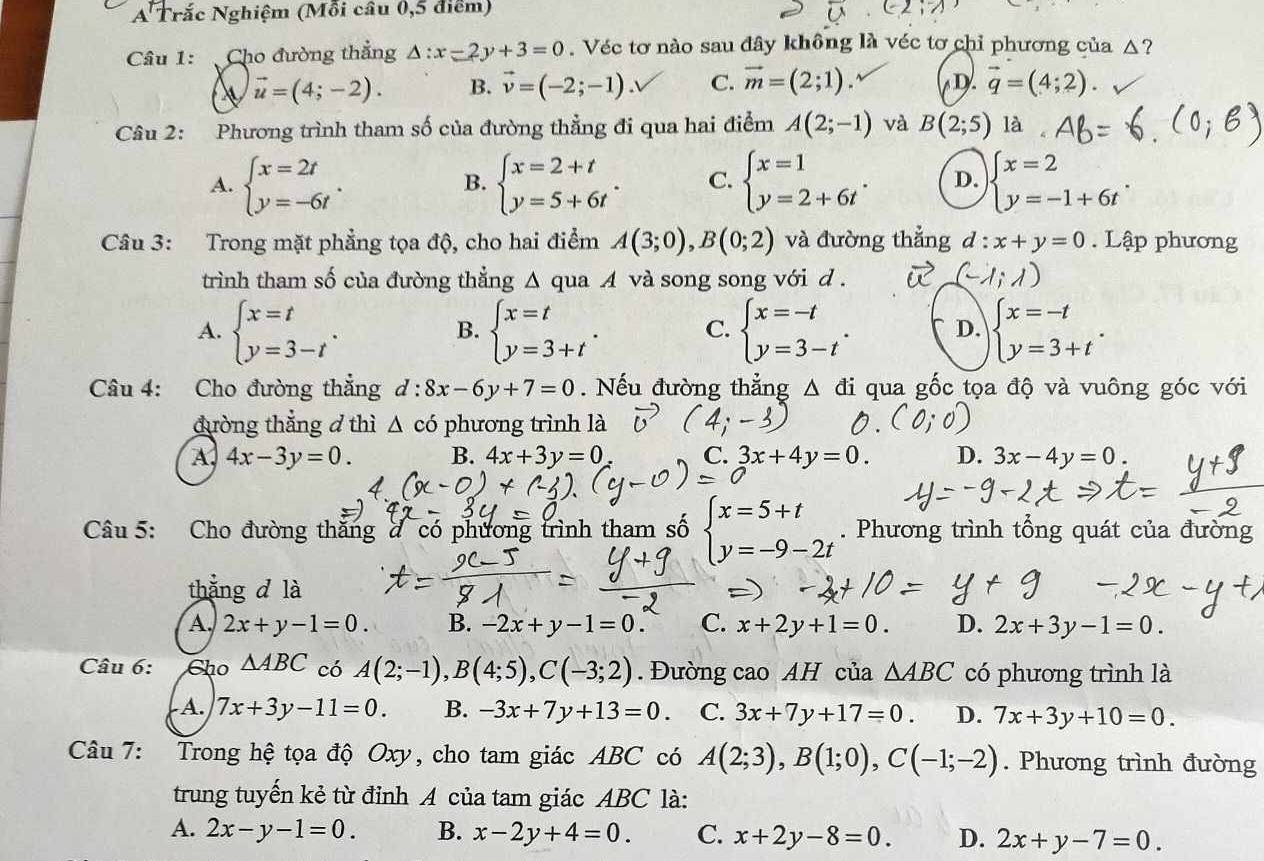 A Trắc Nghiệm (Mỗi câu 0,5 điểm)
Câu 1: Cho đường thẳng Δ : x − 2y + 3 = 0 . Véc tơ nào sau đây không là véc tơ chỉ phương của Δ?
A. u⃗ = (4; −2) . B. v⃗ = (−2; −1) . ✓ C. m⃗ = (2;1) . ✓ D. q⃗ = (4;2) . ✓
Câu 2: Phương trình tham số của đường thẳng đi qua hai điểm A(2;−1) và B(2;5) là . AB = 6. (0; 6)
A. {x = 2t
y = −6t .
B. {x = 2 + t
y = 5 + 6t .
C. {x = 1
y = 2 + 6t .
D. {x = 2
y = −1 + 6t .
Câu 3: Trong mặt phẳng tọa độ, cho hai điểm A(3;0), B(0;2) và đường thẳng d : x + y = 0 . Lập phương
trình tham số của đường thẳng Δ qua A và song song với d . u⃗ (-1; 1)
A. {x = t
y = 3 − t .
B. {x = t
y = 3 + t .
C. {x = −t
y = 3 − t .
D. {x = −t
y = 3 + t .
Câu 4: Cho đường thẳng d : 8x − 6y + 7 = 0 . Nếu đường thẳng Δ đi qua gốc tọa độ và vuông góc với
đường thẳng d thì Δ có phương trình là v⃗ (4; -3) O. (0; 0)
A. 4x − 3y = 0 . B. 4x + 3y = 0 . C. 3x + 4y = 0 . D. 3x − 4y = 0 .
4. (x - 0) + (-3). (y - 0) = 0
=> 4x - 3y = 0
y = -9 - 2t => t = y + 9 / -2
Câu 5: Cho đường thẳng d có phương trình tham số {x = 5 + t
y = −9 − 2t . Phương trình tổng quát của đường
thẳng d là
t = x - 5 / 1 = y + 9 / -2 => -2x + 10 = y + 9 -2x - y +
A. 2x + y − 1 = 0 . B. −2x + y − 1 = 0 . C. x + 2y + 1 = 0 . D. 2x + 3y − 1 = 0 .
Câu 6: Cho ΔABC có A(2;−1), B(4;5), C(−3;2) . Đường cao AH của ΔABC có phương trình là
A. 7x + 3y − 11 = 0 . B. −3x + 7y + 13 = 0 . C. 3x + 7y + 17 = 0 . D. 7x + 3y + 10 = 0 .
Câu 7: Trong hệ tọa độ Oxy, cho tam giác ABC có A(2;3), B(1;0), C(−1;−2) . Phương trình đường
trung tuyến kẻ từ đỉnh A của tam giác ABC là:
A. 2x − y − 1 = 0 . B. x − 2y + 4 = 0 . C. x + 2y − 8 = 0 . D. 2x + y − 7 = 0 .